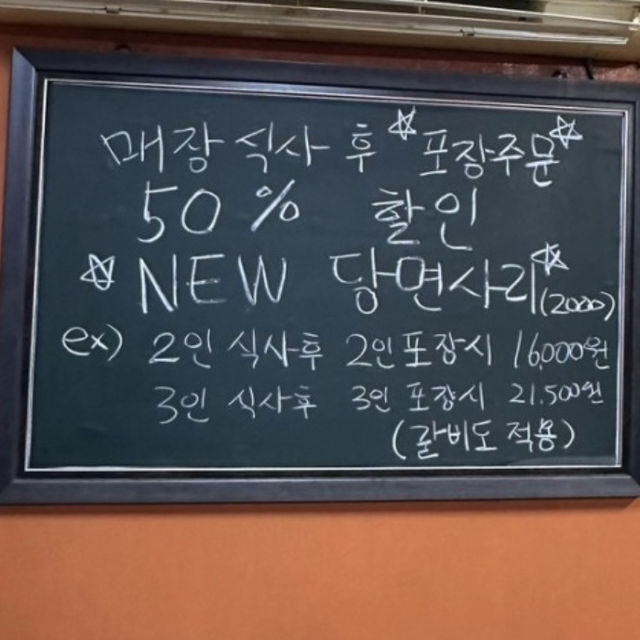 매장 식사 후 ☆포장주문☆
50% 할인
☆ NEW 당면사리☆(2000)
ex) 2인 식사후 2인포장시 16,000원
3인 식사후 3인 포장시 21.500원
(갈비도 적용)